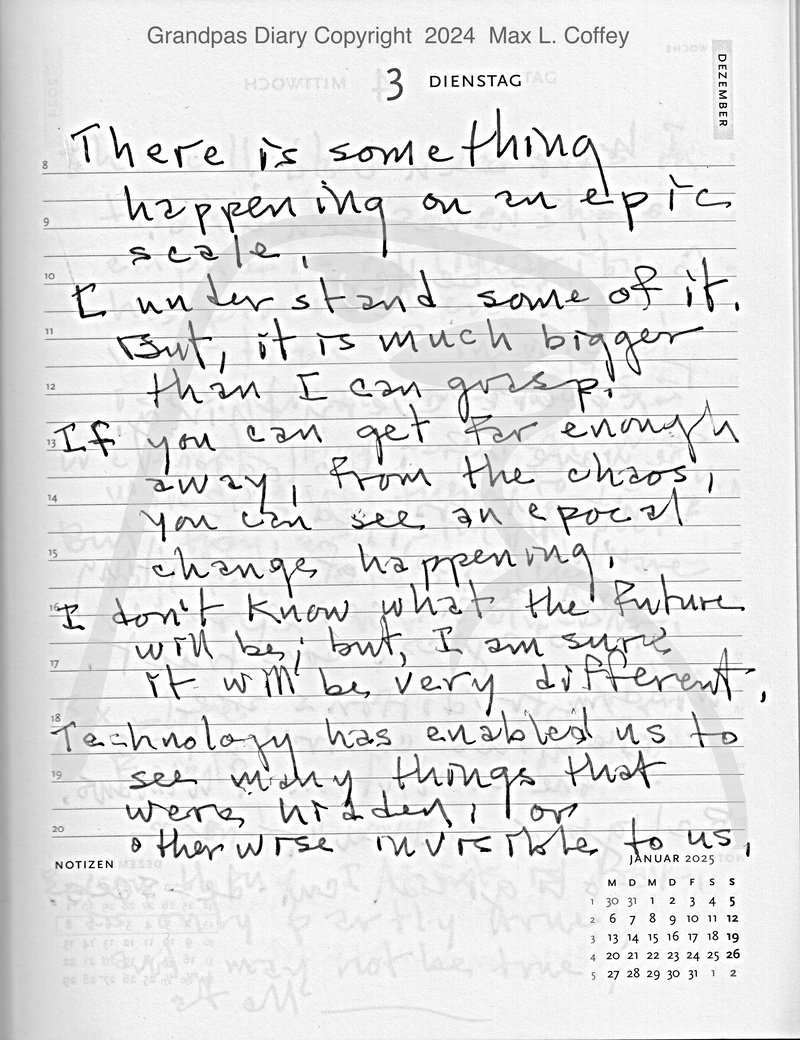 Grandpas Diary Copyright 2024 Max L. Coffey
3 DIENSTAG
DEZEMBER
There is something
happening on an epic
scale.
I understand some of it.
But, it is much bigger
than I can grasp.
If you can get far enough
away, from the chaos,
you can see an epocal
change happening.
I don't know what the future
will be; but, I am sure
it will be very different.
Technology has enabled us to
see many things that
were hidden; or
otherwise invisible to us.
8
9
10
11
12
13
14
15
16
17
18
19
20
NOTIZEN
JANUAR 2025
M D M D F S S
1 30 31 1 2 3 4 5
2 6 7 8 9 10 11 12
3 13 14 15 16 17 18 19
4 20 21 22 23 24 25 26
5 27 28 29 30 31 1 2